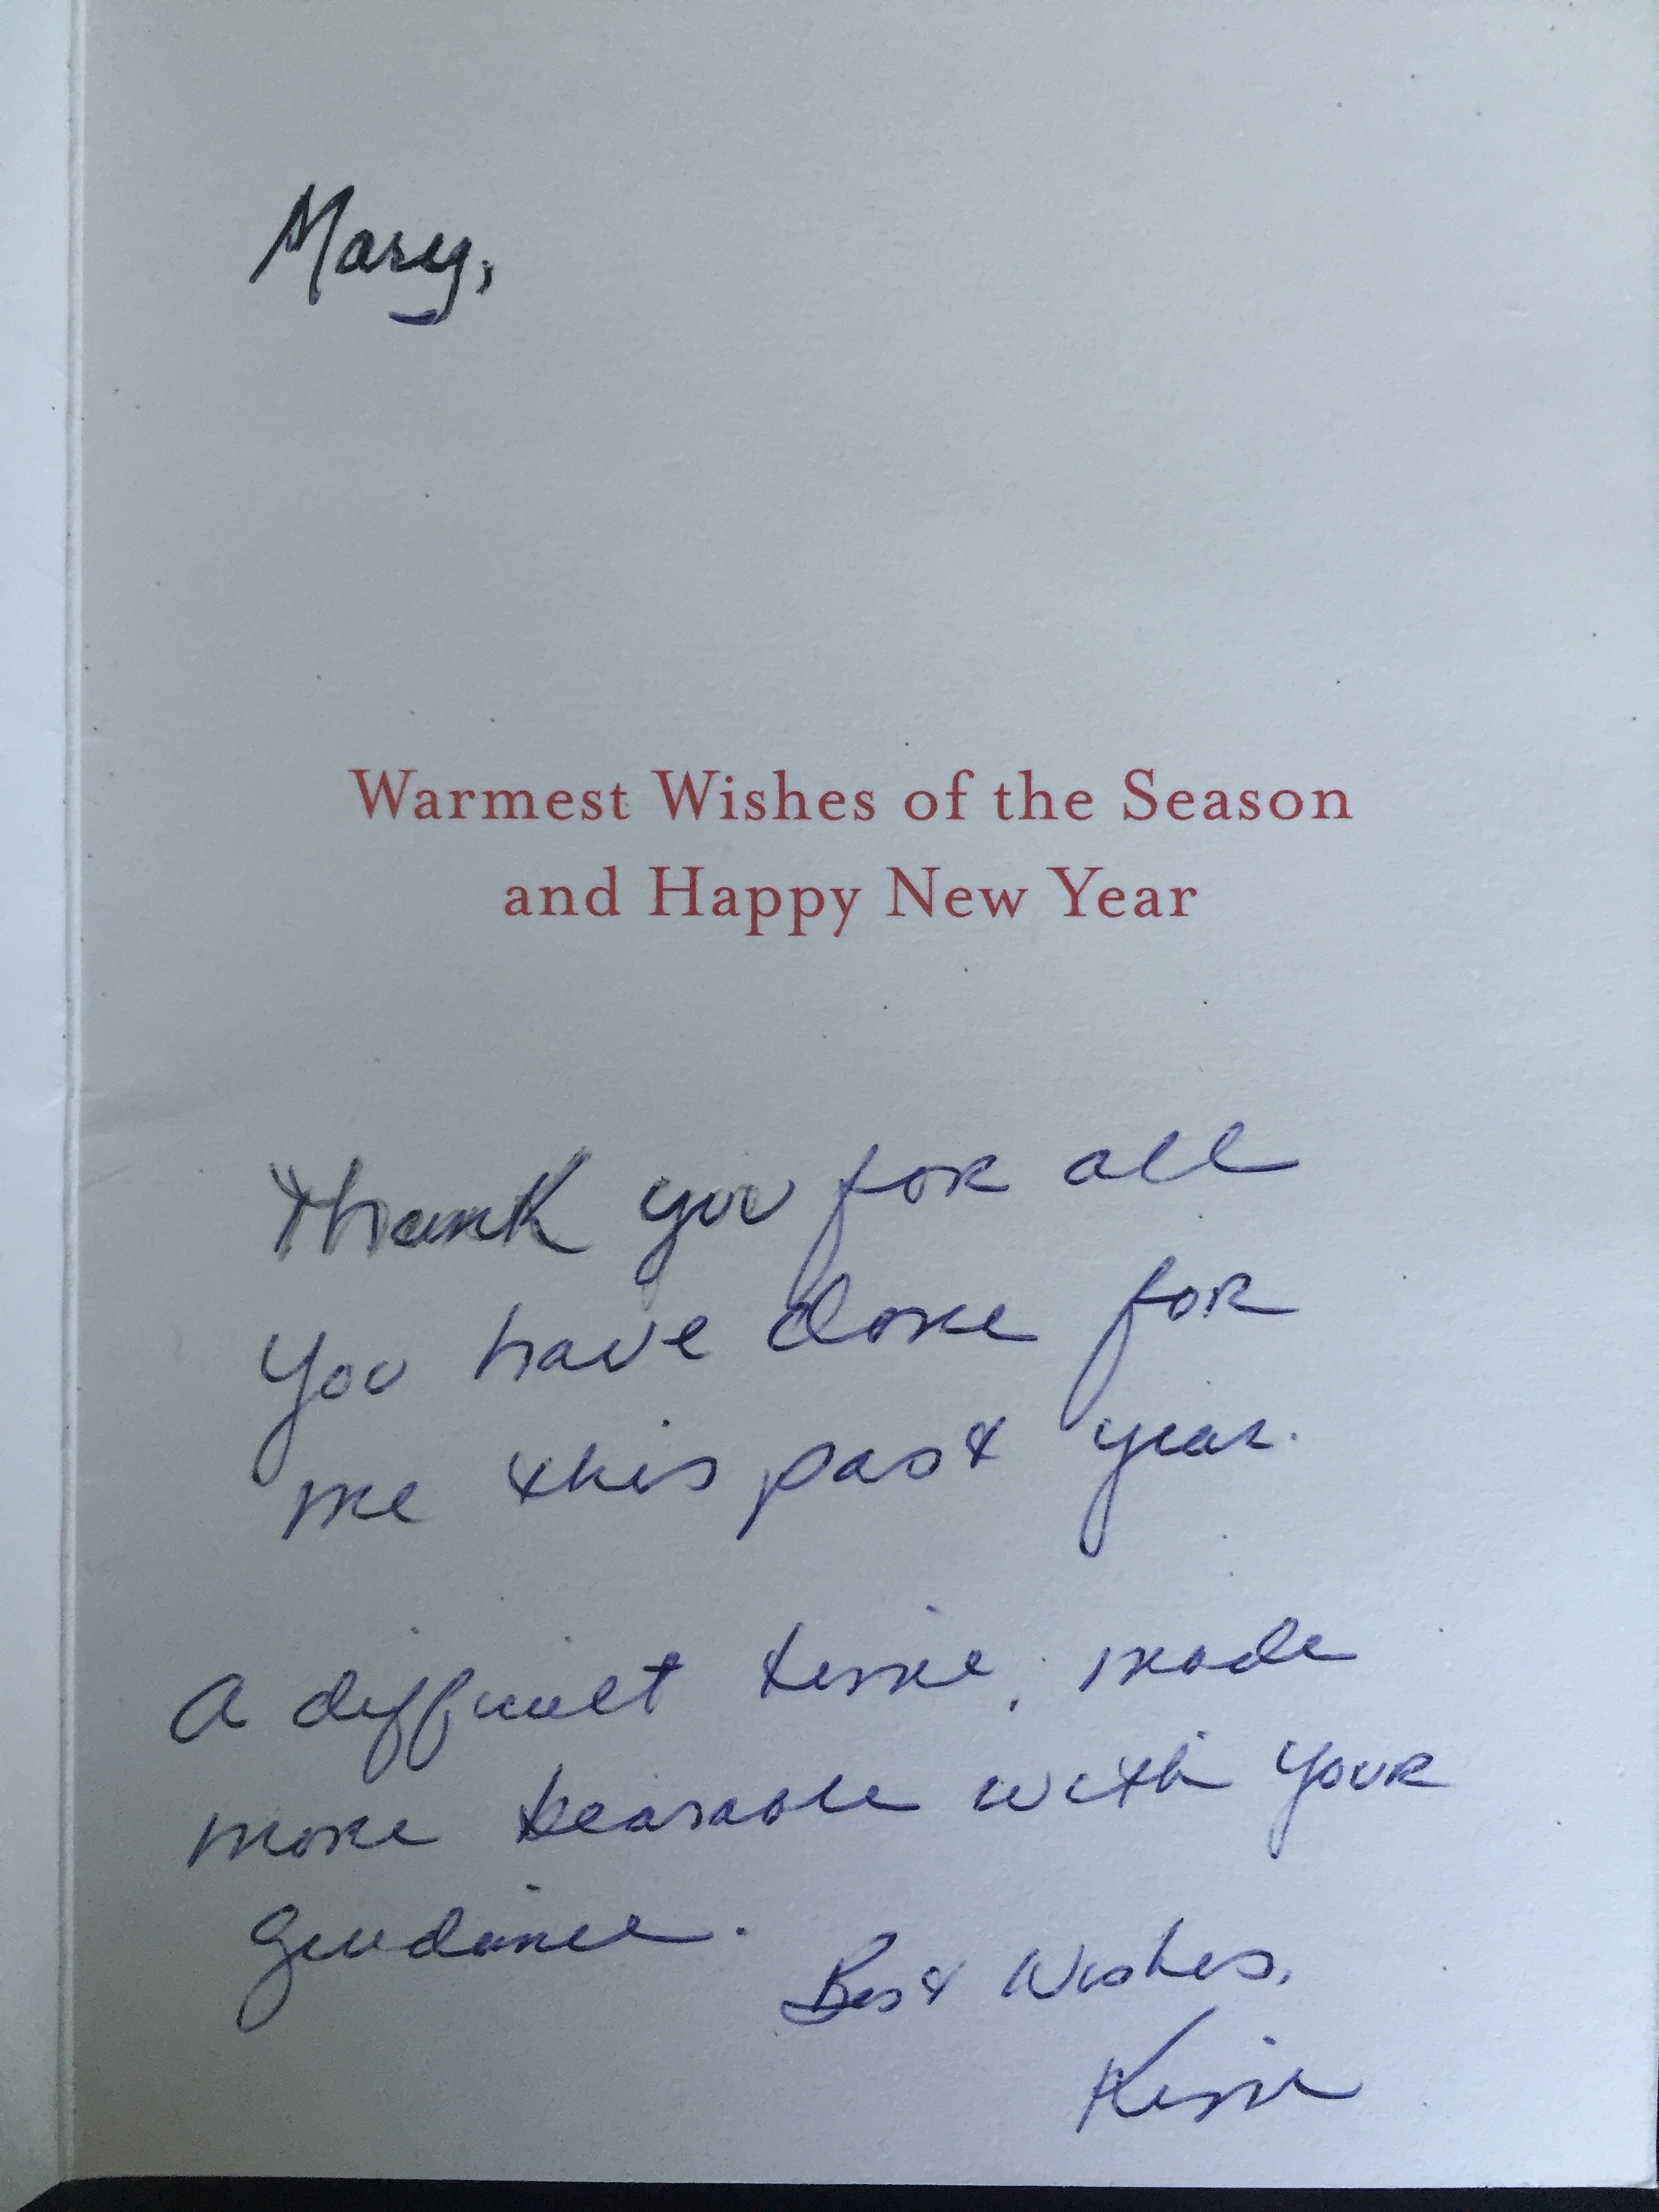 Mary,
Warmest Wishes of the Season
and Happy New Year
Thank you for all
you have done for
me this past year.
A difficult time, made
more bearable with your
guidance.
Best Wishes,